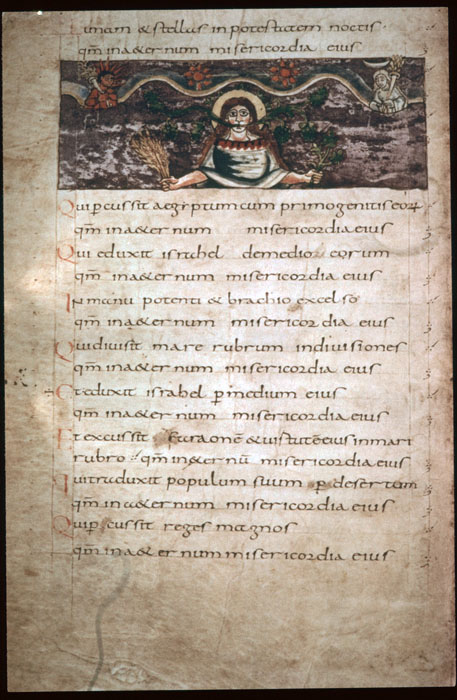 Lunam & stellas in potestatem noctis
qm̄ in aeternum misericordia eius
Qui percussit aegiptum cum primogenitis eorꝝ
qm̄ in aeternum misericordia eius
Qui eduxit israhel demedio eorum
qm̄ in aeternum misericordia eius
In manu potenti & brachio excelso
qm̄ in aeternum misericordia eius
Qui diuisit mare rubrum indiuisiones
qm̄ in aeternum misericordia eius
Et eduxit israhel ꝑ medium eius
qm̄ in aeternum misericordia eius
Et excussit faraonē & uirtutē eius in mari
rubro qm̄ in aeternū misericordia eius
Qui traduxit populum suum ꝑ desertum
qm̄ in aeternum misericordia eius
Qui ꝑcussit reges magnos
qm̄ in aeternum misericordia eius